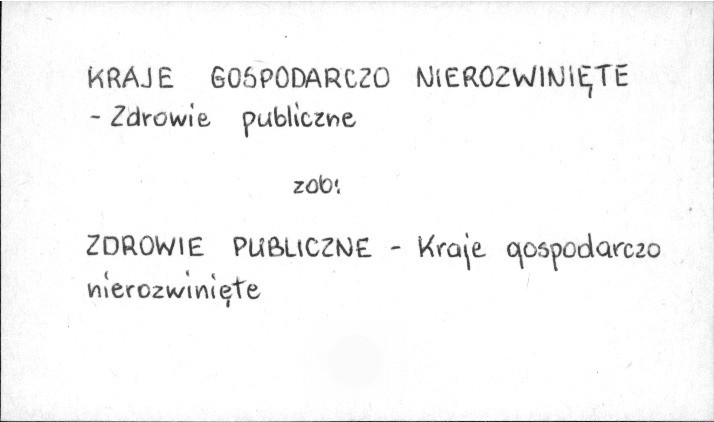 KRAJE GOSPODARCZO NIEROZWINIĘTE
- Zdrowie publiczne
zob:
ZDROWIE PUBLICZNE - Kraje gospodarczo
nierozwinięte